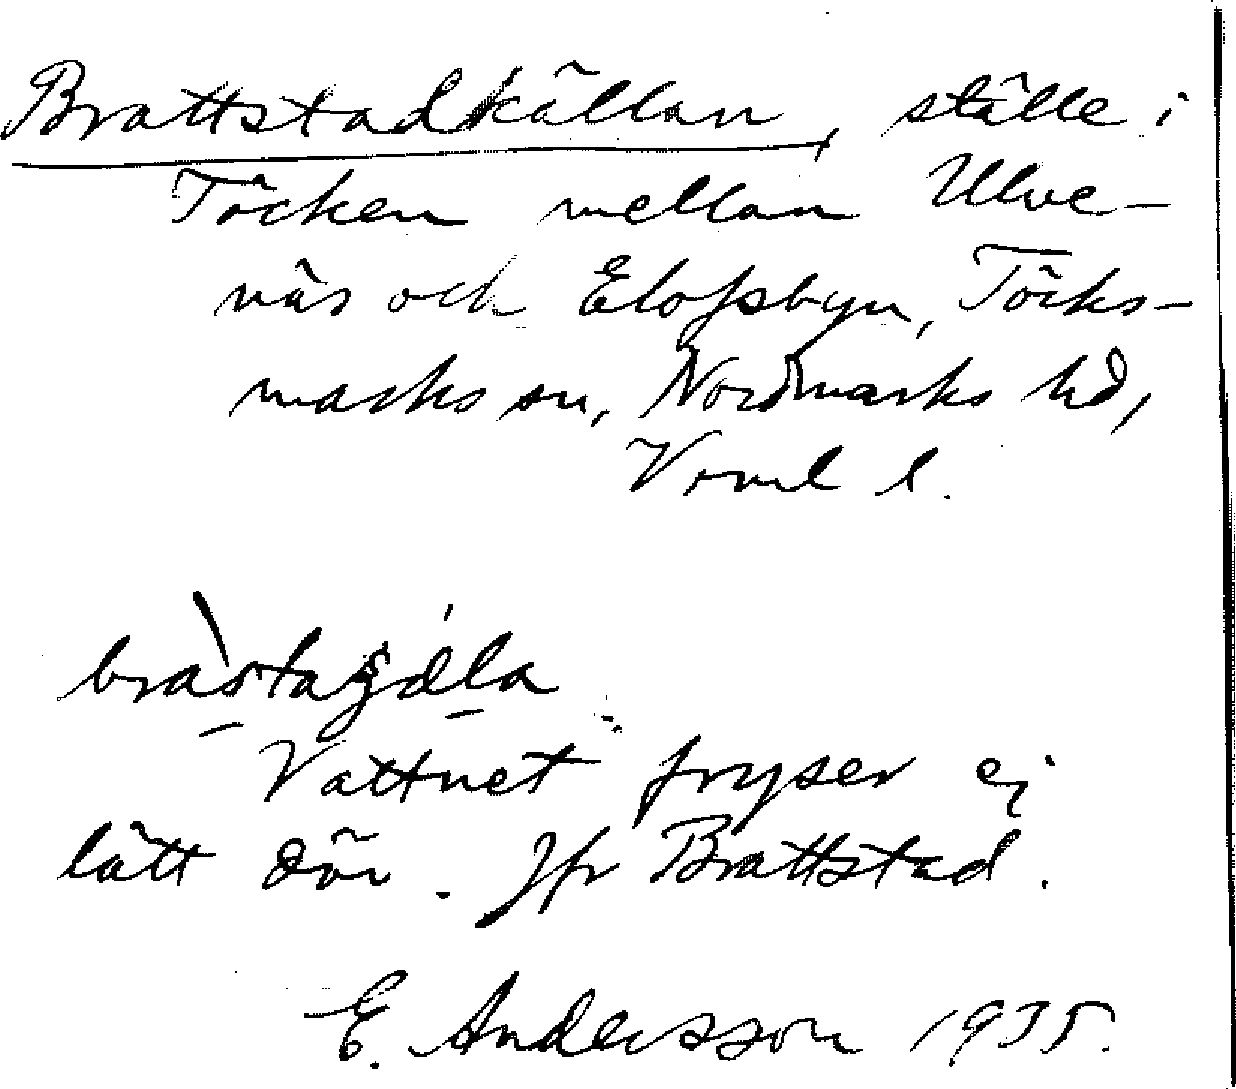 Brattstadkällan, ställe i
Töcken mellan Ulve-
näs och Elofsbyn, Töcks-
marks sn, Nordmarks hd,
Vrml l.
Vattnet fryser ej
lätt där. Jfr Brattstad.
E. Andersson 1935.